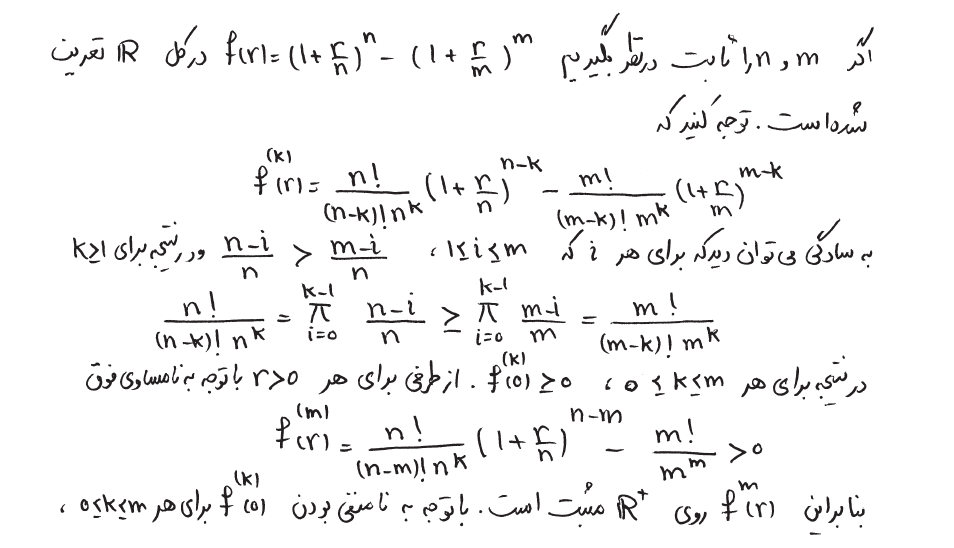 اگر m و n را ثابت در نظر بگیریم f(r) = (1 + r/n)^n − (1 + r/m)^m در کل ℝ تعریف
شده است. توجه کنید که
f^(k)(r) = n!/((n−k)! n^k) (1 + r/n)^(n−k) − m!/((m−k)! m^k) (1 + r/m)^(m−k)
به سادگی می توان دید که برای هر i که 1 ≤ i ≤ m ، (n−i)/n > (m−i)/n و در نتیجه برای k ≥ 1
n!/((n−k)! n^k) = ∏_{i=0}^{k−1} (n−i)/n ≥ ∏_{i=0}^{k−1} (m−i)/m = m!/((m−k)! m^k)
در نتیجه برای هر 0 ≤ k ≤ m ، f^(k)(0) ≥ 0 . از طرفی برای هر r > 0 با توجه به نامساوی فوق
f^(m)(r) = n!/((n−m)! n^k) (1 + r/n)^(n−m) − m!/m^m > 0
بنابراین f^m(r) روی ℝ^+ مثبت است. با توجه به نامنفی بودن f^(k)(0) برای هر 0 ≤ k ≤ m ،